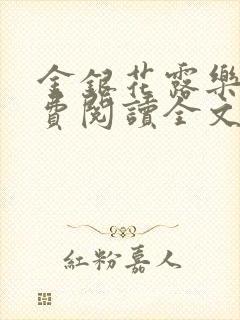 金銀花露樂
費閱讀全文
紅粉嘉人